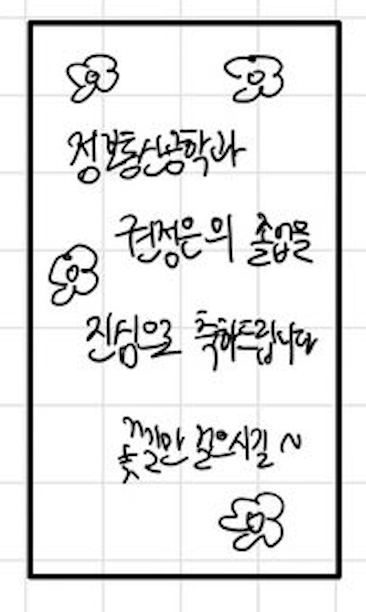 정보통신공학과
권정은의 졸업을
진심으로 축하드립니다
꽃길만 걸으시길 ~